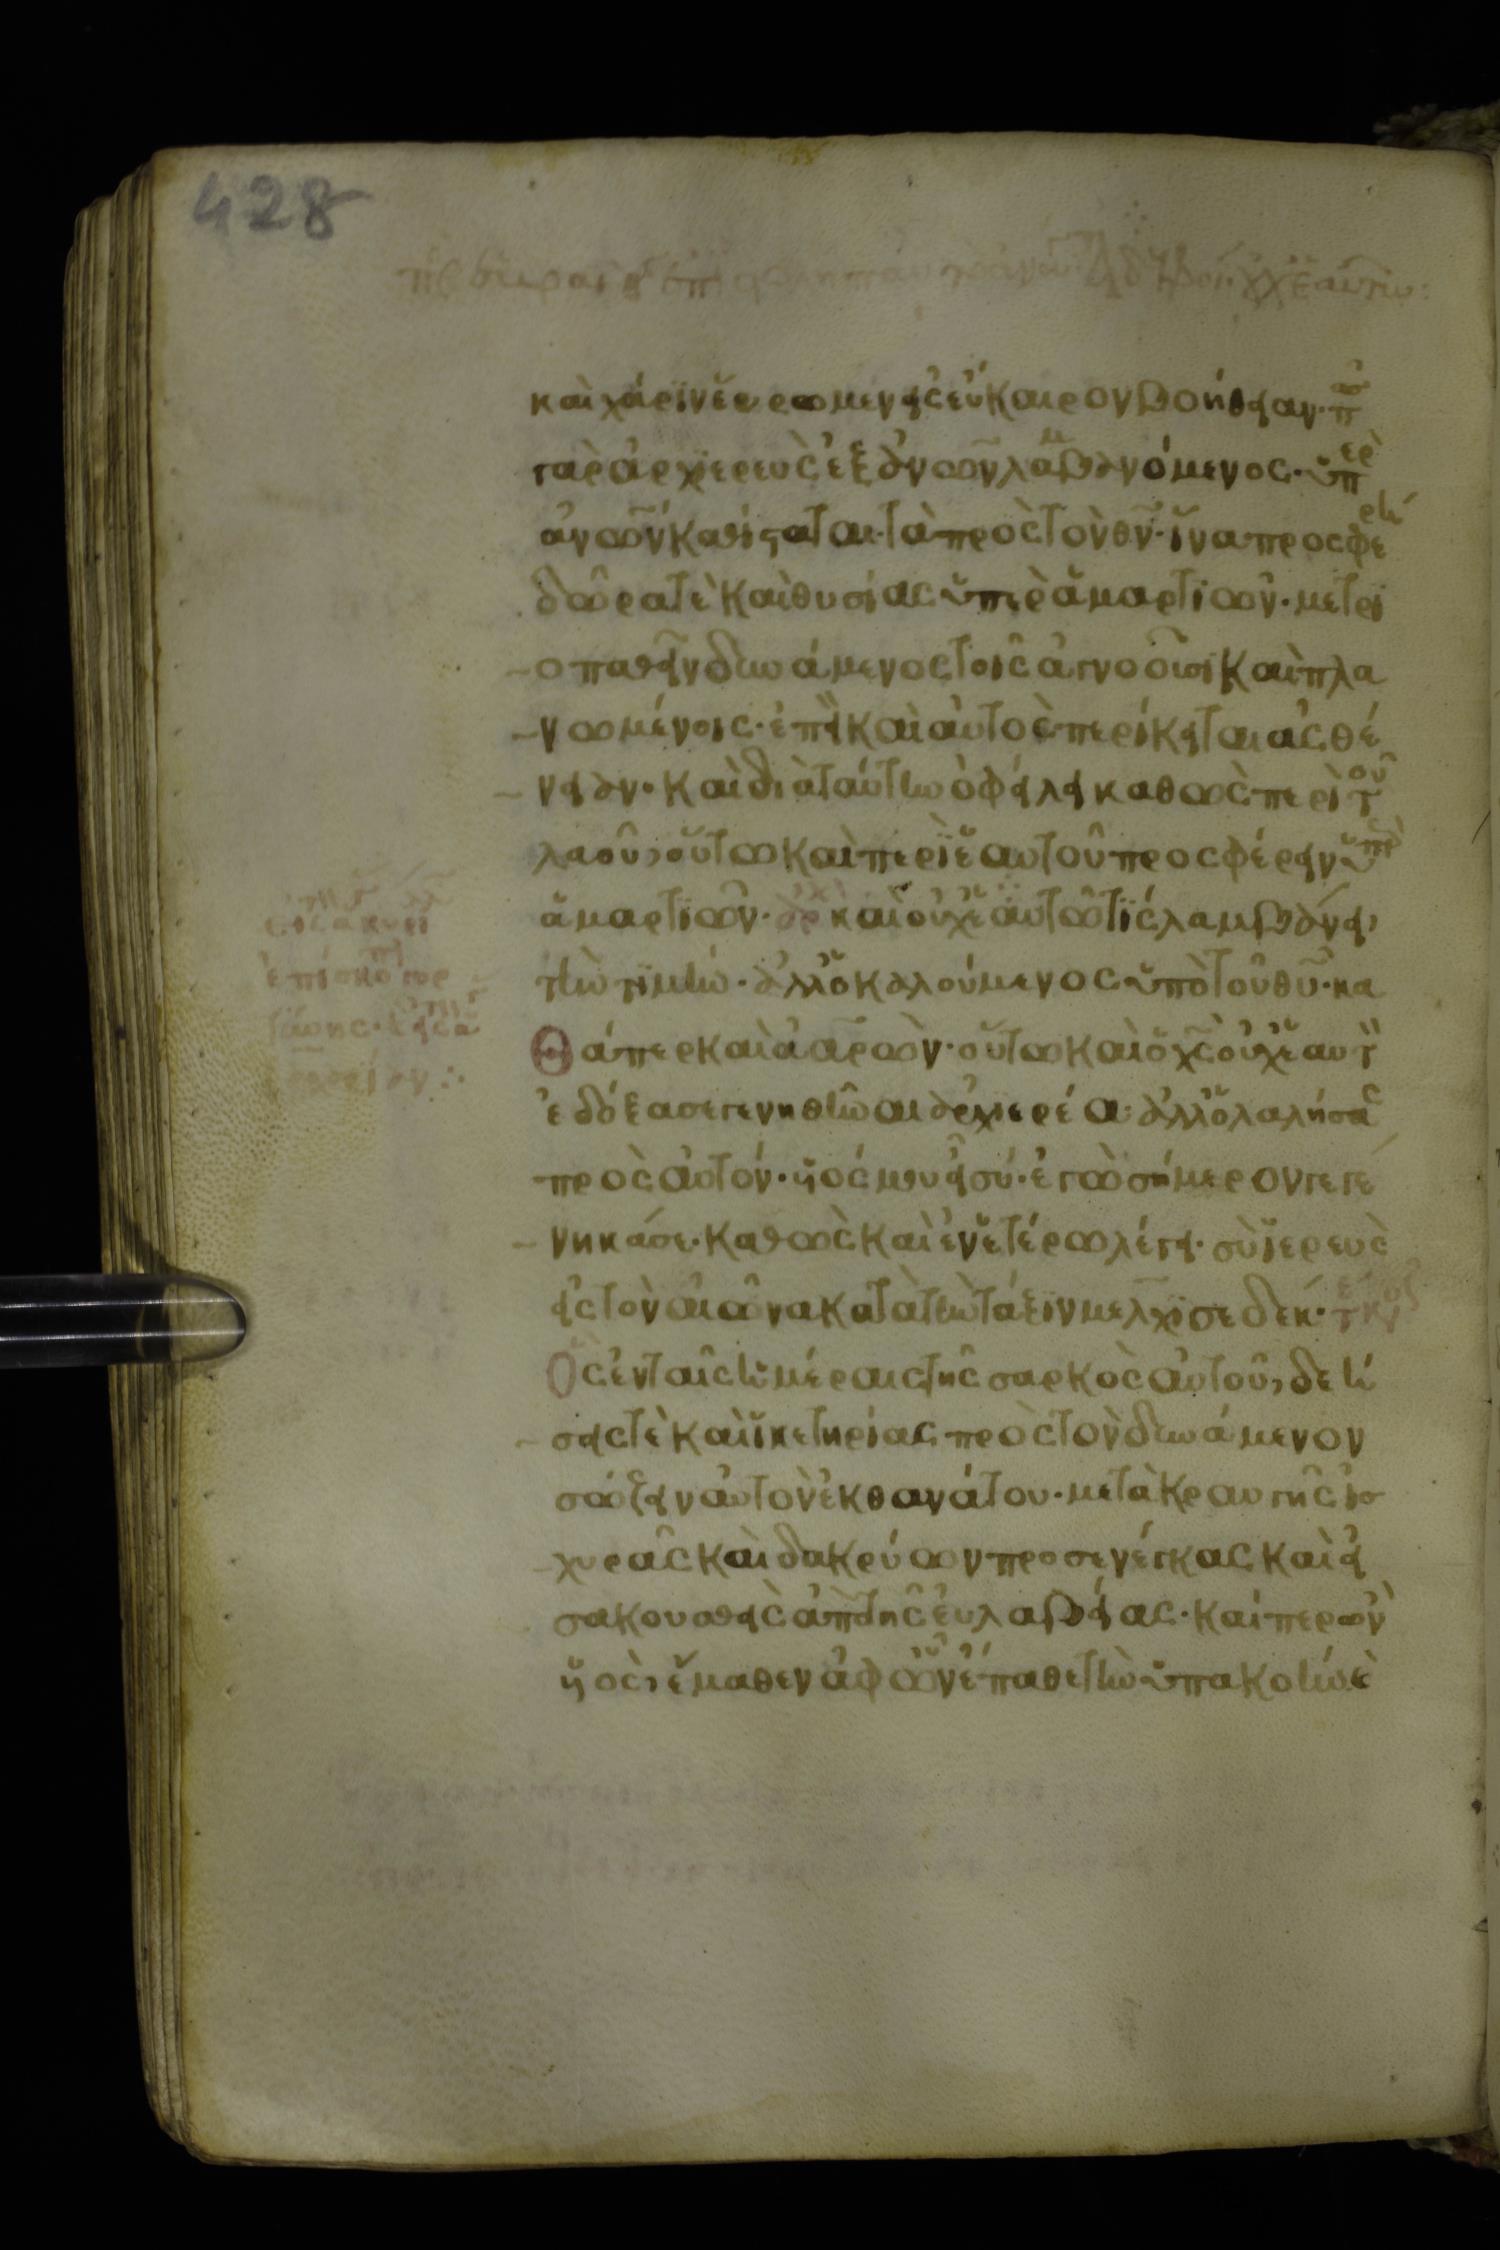 428
καὶ χάριν εὕρωμεν εἰς εὔκαιρον βοήθειαν· πᾶσ
γὰρ ἀρχιερεὺς ἐξ ἀνῶν λαμβανόμενος· ὑπὲρ
ἀνῶν καθίσταται τὰ πρὸς τὸν θν· ἵνα προσφέρη
δῶρά τὲ καὶ θυσίας ὑπὲρ ἁμαρτιῶν· μετρι
οπαθεῖν δυνάμενος τοῖς ἀγνοοῦσι καὶ πλα
νωμένοις· ἐπεὶ καὶ αὐτὸς περίκειται ἀσθέ
νειαν· καὶ διὰ ταύτην ὀφείλει καθὼς περὶ τοῦ
λαοῦ, οὕτω καὶ περὶ ἑαυτοῦ προσφέρειν ὑπὲρ
ἁμαρτιῶν· καὶ οὐχ ἑαυτῶ τίς λαμβάνει,
τὴν τιμήν· ἀλλ' ὁ καλούμενος ὑπὸ τοῦ θυ· κα
θάπερ καὶ ἀαρών· οὕτω καὶ ὁ χς οὐχ ἑαυτὸ
ἐδόξασε γενηθῆναι ἀρχιερέα· ἀλλ' ὁ λαλήσας
πρὸς αὐτόν· υἱός μου εἶ σύ· ἐγὼ σήμερον γεγέ
νηκά σε· καθὼς καὶ ἐν ἑτέρω λέγει· σὺ ἱερεὺς
εἰς τὸν αἰῶνα κατὰ τὴν τάξιν μελχισεδέκ·
Ὃς ἐν ταῖς ἡμέραις τῆς σαρκὸς αὐτοῦ, δεή
σεις τὲ καὶ ἱκετηρίας πρὸς τὸν δυνάμενον
σώζειν αὐτὸν ἐκ θανάτου· μετὰ κραυγῆς ἰσ
χυρᾶς καὶ δακρύων προσενέγκας καὶ εἰ
σακουσθεὶς ἀπὸ τῆς εὐλαβείας· καίπερ ὢν
υἱὸς, ἔμαθεν ἀφ' ὧν ἔπαθε τὴν ὑπακοήν· κὲ